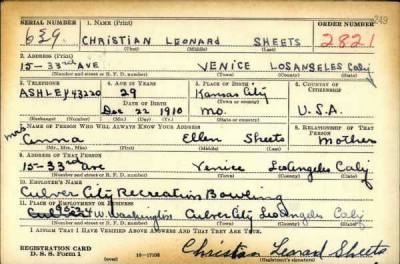 SERIAL NUMBER 1. NAME (Print) ORDER NUMBER 249
639 CHRISTIAN LEONARD SHEETS 2821
(First) (Middle) (Last)
2. ADDRESS (Print)
15-33rd AVE VENICE LOS ANGELES Calif
(Number and street or R. F. D. number) (Town) (County) (State)
3. TELEPHONE 4. AGE IN YEARS 5. PLACE OF BIRTH 6. COUNTRY OF CITIZENSHIP
ASHLEY 43220 29 Kansas City
DATE OF BIRTH (Town or county)
Dec 22 1910 Mo. U.S.A.
(Exchange) (Number) (Mo.) (Day) (Yr.) (State or country)
7. NAME OF PERSON WHO WILL ALWAYS KNOW YOUR ADDRESS 8. RELATIONSHIP OF THAT PERSON
Mrs Anna Ellen Sheets Mother
(Mr., Mrs., Miss) (First) (Middle) (Last)
9. ADDRESS OF THAT PERSON
15-33rd Ave Venice Los Angeles Calif
(Number and street or R. F. D. number) (Town) (County) (State)
10. EMPLOYER'S NAME
Culver City Recreation Bowling
11. PLACE OF EMPLOYMENT OR BUSINESS
W. Washington Culver City Los Angeles Calif
(Number and street or R. F. D. number) (Town) (County) (State)
I AFFIRM THAT I HAVE VERIFIED ABOVE ANSWERS AND THAT THEY ARE TRUE.
REGISTRATION CARD
D. S. S. Form 1 16-17105 Christian Leonard Sheets
(over) (Registrant's signature)